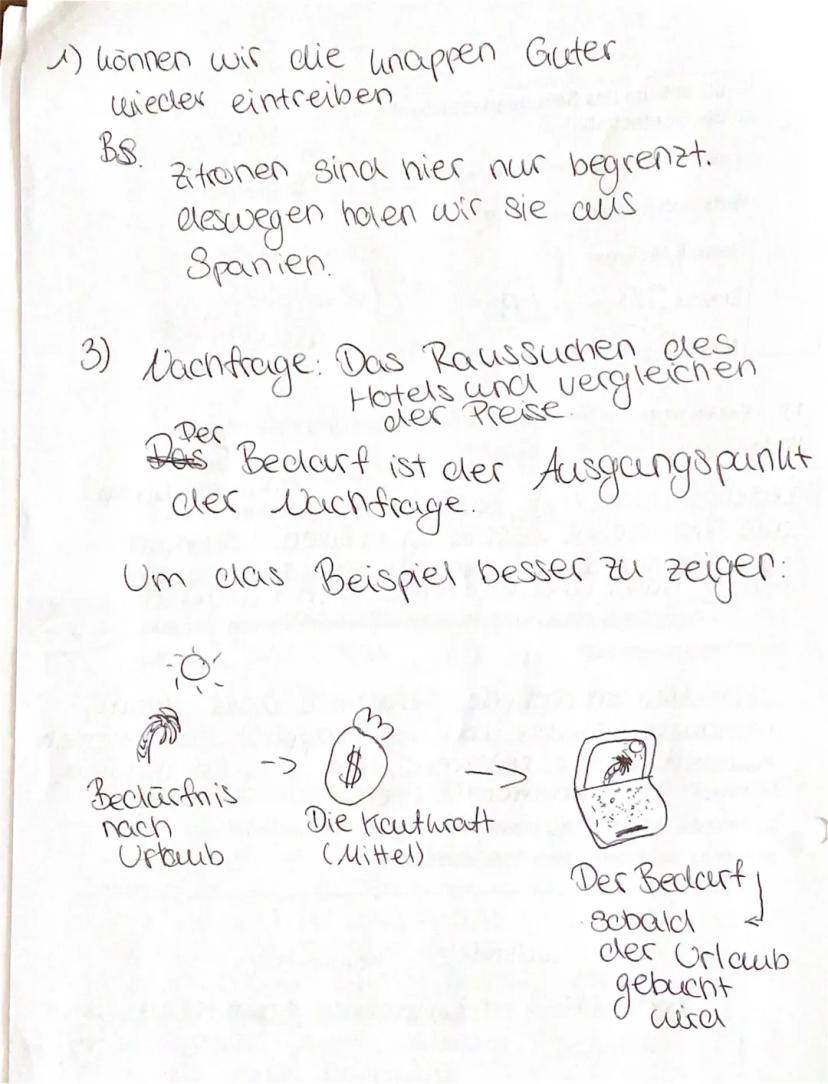 1) können wir die knappen Güter
wieder eintreiben
BS.
Zitronen sind hier nur begrenzt.
deswegen holen wir sie aus
Spanien.
3) Nachfrage: Das Raussuchen des
Hotels und vergleichen
der Preise.
Der
Das Bedarf ist der Ausgangspunkt
der Nachfrage.
Um das Beispiel besser zu zeigen:
$
-> ->
Bedürfnis
nach
Urlaub
Die Kaufkraft
(Mittel)
Der Bedarf
sobald
der Urlaub
gebucht
wird